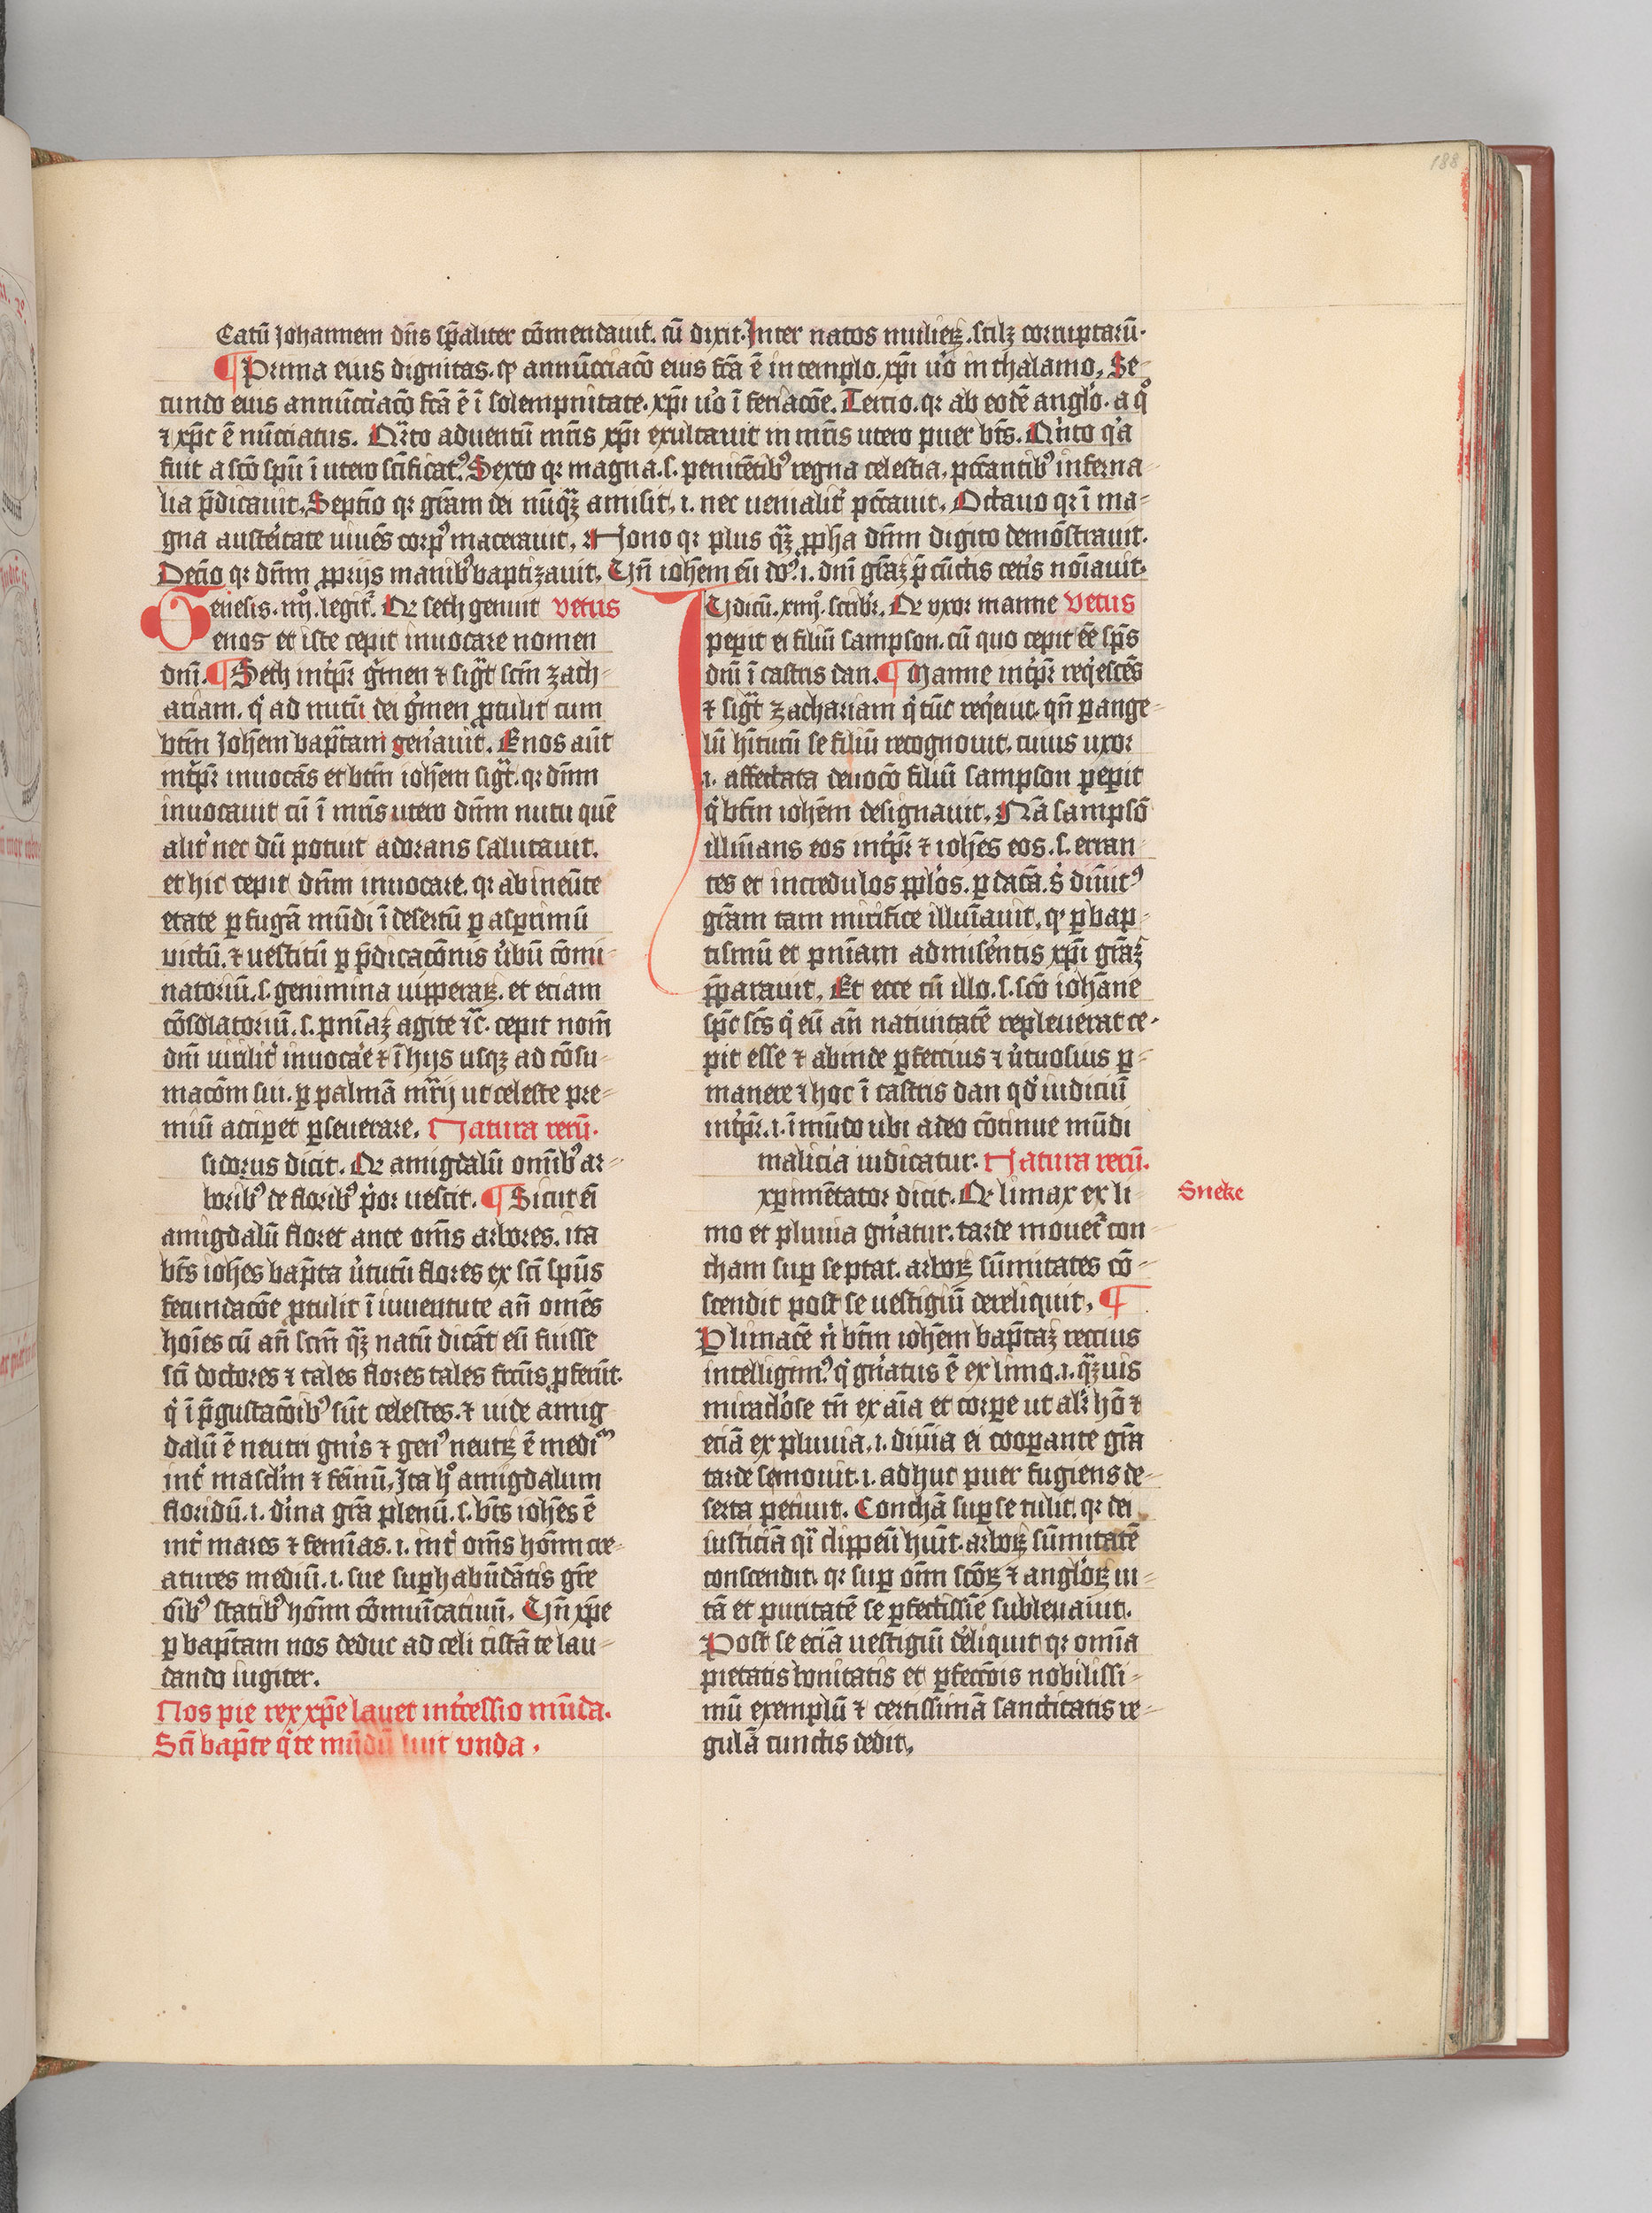 188
Catū Johannem dn̄s sp̄aliter cōmendauit. cū dixit. Inter natos mulieꝝ. scilꝫ corruptarū.
¶ Prima eius dignitas. ꝙ annūcciacō eius fc̄a ē in templo. xp̄i u̓o in thalamo. Se⸗
cundo eius annūcciacō fc̄a ē ī solempnitate. xp̄i u̓o ī feriacōe. Tercio. qr ab eodē anglo. a qͦ
⁊ xp̄c ē nūcciatus. Qͣrto aduentū mr̄is xp̄i exultauit in mr̄is utero puer bt̄s. Qi̓nto qi̓a
fuit a scō spū ī utero sc̄ificatꝰ. Sexto qr magna. s. penitētibꝰ regna celestia. pccantibꝰ inferna⸗
lia p̄dicauit. Septīo qr gr̄am dei nūqͣꝫ amisit. i. nec uenialit̓ pccauit. Octauo qr ī ma⸗
gna auste̓itate uiuēs corpꝰ macerauit. Nono qr plus qͣꝫ ꝓpha dn̄m digito demōstrauit.
Decīo qr dn̄m ꝓprijs manibꝰ baptizauit. Vn̄ ioh̄em eū dōꝰ. i. dn̄i gr̄aꝫ p̄ cūctis cet̓is noīauit.
Genesis. iiijͦ. legit᷑. Qr seth genuit vetus
enos et iste cepit inuocare nomen
dn̄i. ¶ Seth int̓pͬ gͬmen ⁊ sigͣt scm̄ zach⸗
ariam. qͥ ad nutū dei gͬmen ꝓtulit cum
btm̄ Joh̄em bap̄tam gen̓auit. Enos aūt
int̓pͬ inuocās et btm̄ ioh̄em sigͣt. qr dn̄m
inuocauit cū ī mr̄is utero dn̄m nutu quē
alit̓ nec dū potuit adorans salutauit.
et hic cepit dn̄m inuocare. qr ab ineūte
etate ꝑ fugā mūdi ī desertū ꝑ asprimū
victū. ⁊ uestitū ꝑ p̄dicacōnis u̓bū cōmi⸗
natoriū. s. genimina uipperaꝝ. et eciam
cōsolatoriū. s. pn̄iaꝫ agite ⁊c̄. cepit nom̄
dn̄i uirilit̓ inuoca̓e ⁊ ī hijs usqꝫ ad cōsu⸗
macōm sui. ꝑ palmā mr̄ij ut celeste pre⸗
miū accipet ꝑseuerare. Natura rerū.
sidorus dicit. Qr amigdalū om̄ibꝰ ar⸗
boribꝰ de floribꝰ p̓or uestit. ¶ Sicut eī
amigdalū floret ante om̄s arbores. ita
bt̄s ioh̄es bap̄ta u̓tutū flores ex sc̄i spūs
fecundacōe ꝓtulit ī iuuentute an̄ omēs
hoīes cū an̄ scm̄ qͣꝫ natū dicāt eū fuisse
sc̄i doctores ⁊ tales flores tales fruc̄us ꝑferūt.
qͥ ī p̄gustacōibꝰ sūt celestes. ⁊ uide amig
dalū ē neutri gn̓is ⁊ genꝰ neutꝝ ē mediū
int̓ mascl̓in ⁊ femīnū. Ita hͦ amigdalum
floridū. i. di̓na gr̄a plenū. s. bt̄s ioh̄es ē
int̓ mares ⁊ femīas. i. int̓ om̄s hōm cre⸗
atures mediū. i. sue suꝑhabūdātis gr̄e
oībꝰ statibꝰ hōm cōmuīcatiuū. Vn̄ xp̄e
ꝑ bap̄tam nos deduc ad celi cistā te lau⸗
dando iugiter.
Nos pie rex xp̄e lauet int̓cessio mūda.
Sc̄i bap̄te qͥ te mūdū luit vnda.
Judicū. xiiijͦ. scribr᷑. Qr vxor manne Vetus
peꝑit ei filiū sampson. cū quo cepit eē sp̄s
dn̄i ī castris dan. ¶ Manne int̓pͬ req̓escēs
⁊ sigͣt zachariam qͥ tūc req̓euit. qn̄ ꝑ ange⸗
lū hi̓turū se filiū recognouit. cuius uxor
i. affectata deuocō filiū sampson peꝑit
qͥ btm̄ ioh̄em designauit. Nā sampsō
illuīans eos int̓pͬ ⁊ ioh̄es eos. s. erran⸗
tes et incredulos ppl̓os. ꝑ datā. s̓ diuīitꝰ
gr̄am tam mirifice illuīauit. qr ꝑ bap⸗
tismū et pn̄iam admise̓ntis xp̄i gr̄aꝫ
p̄parauit. Et ecce cū illo. s. scō iohāne
sp̄c sc̄s qͥ eū an̄ natiuitatē repleuerat ce⸗
pit esse ⁊ abinde ꝑfeccius ⁊ u̓tuosius ꝑ⸗
manere ⁊ hoc ī castris dan qd̓ iudiciū
int̓pͬ. i. ī mūdo ubi adeo cōtinue mūdi
malicia iudicatur. Natura rerū.
xꝑimētator dicit. Qr limax ex li⸗
mo et pluuia gn̓atur. tarde mouet᷑ con⸗
cham suꝑ se ptat. arboꝝ sūmitates cō⸗
scendit post se uestigiū dereliquit. ¶
P limacē n̓ btm̄ ioh̄em bap̄taꝫ reccius
intelligimꝰ. qͥ gn̓atus ē ex limo. i. qͣꝫuis
miraclo̓se tn̄ ex aīa et corpe ut alꝰ hō ⁊
eciā ex pluuia. i. diuīa ei cooꝑante gr̄a
tarde se mouit. i. adhuc puer fugiens de⸗
serta petiuit. Conchā suꝑ se tulit. qr dei
iusticiā qͣ clippeū huīt. arboꝝ sūmitatē
conscendit. qr suꝑ om̄ scōꝝ ⁊ anglo̓ꝝ ui⸗
tā et puritatē se ꝑfectissīe subleuauit.
Post se eciā uestigiū de̓liquit qr omīa
pietatis bonitatis et ꝑfeccōis nobilissi⸗
mū exemplū ⁊ certissimā sanctitatis re⸗
gulā cunctis dedit.
Sneke